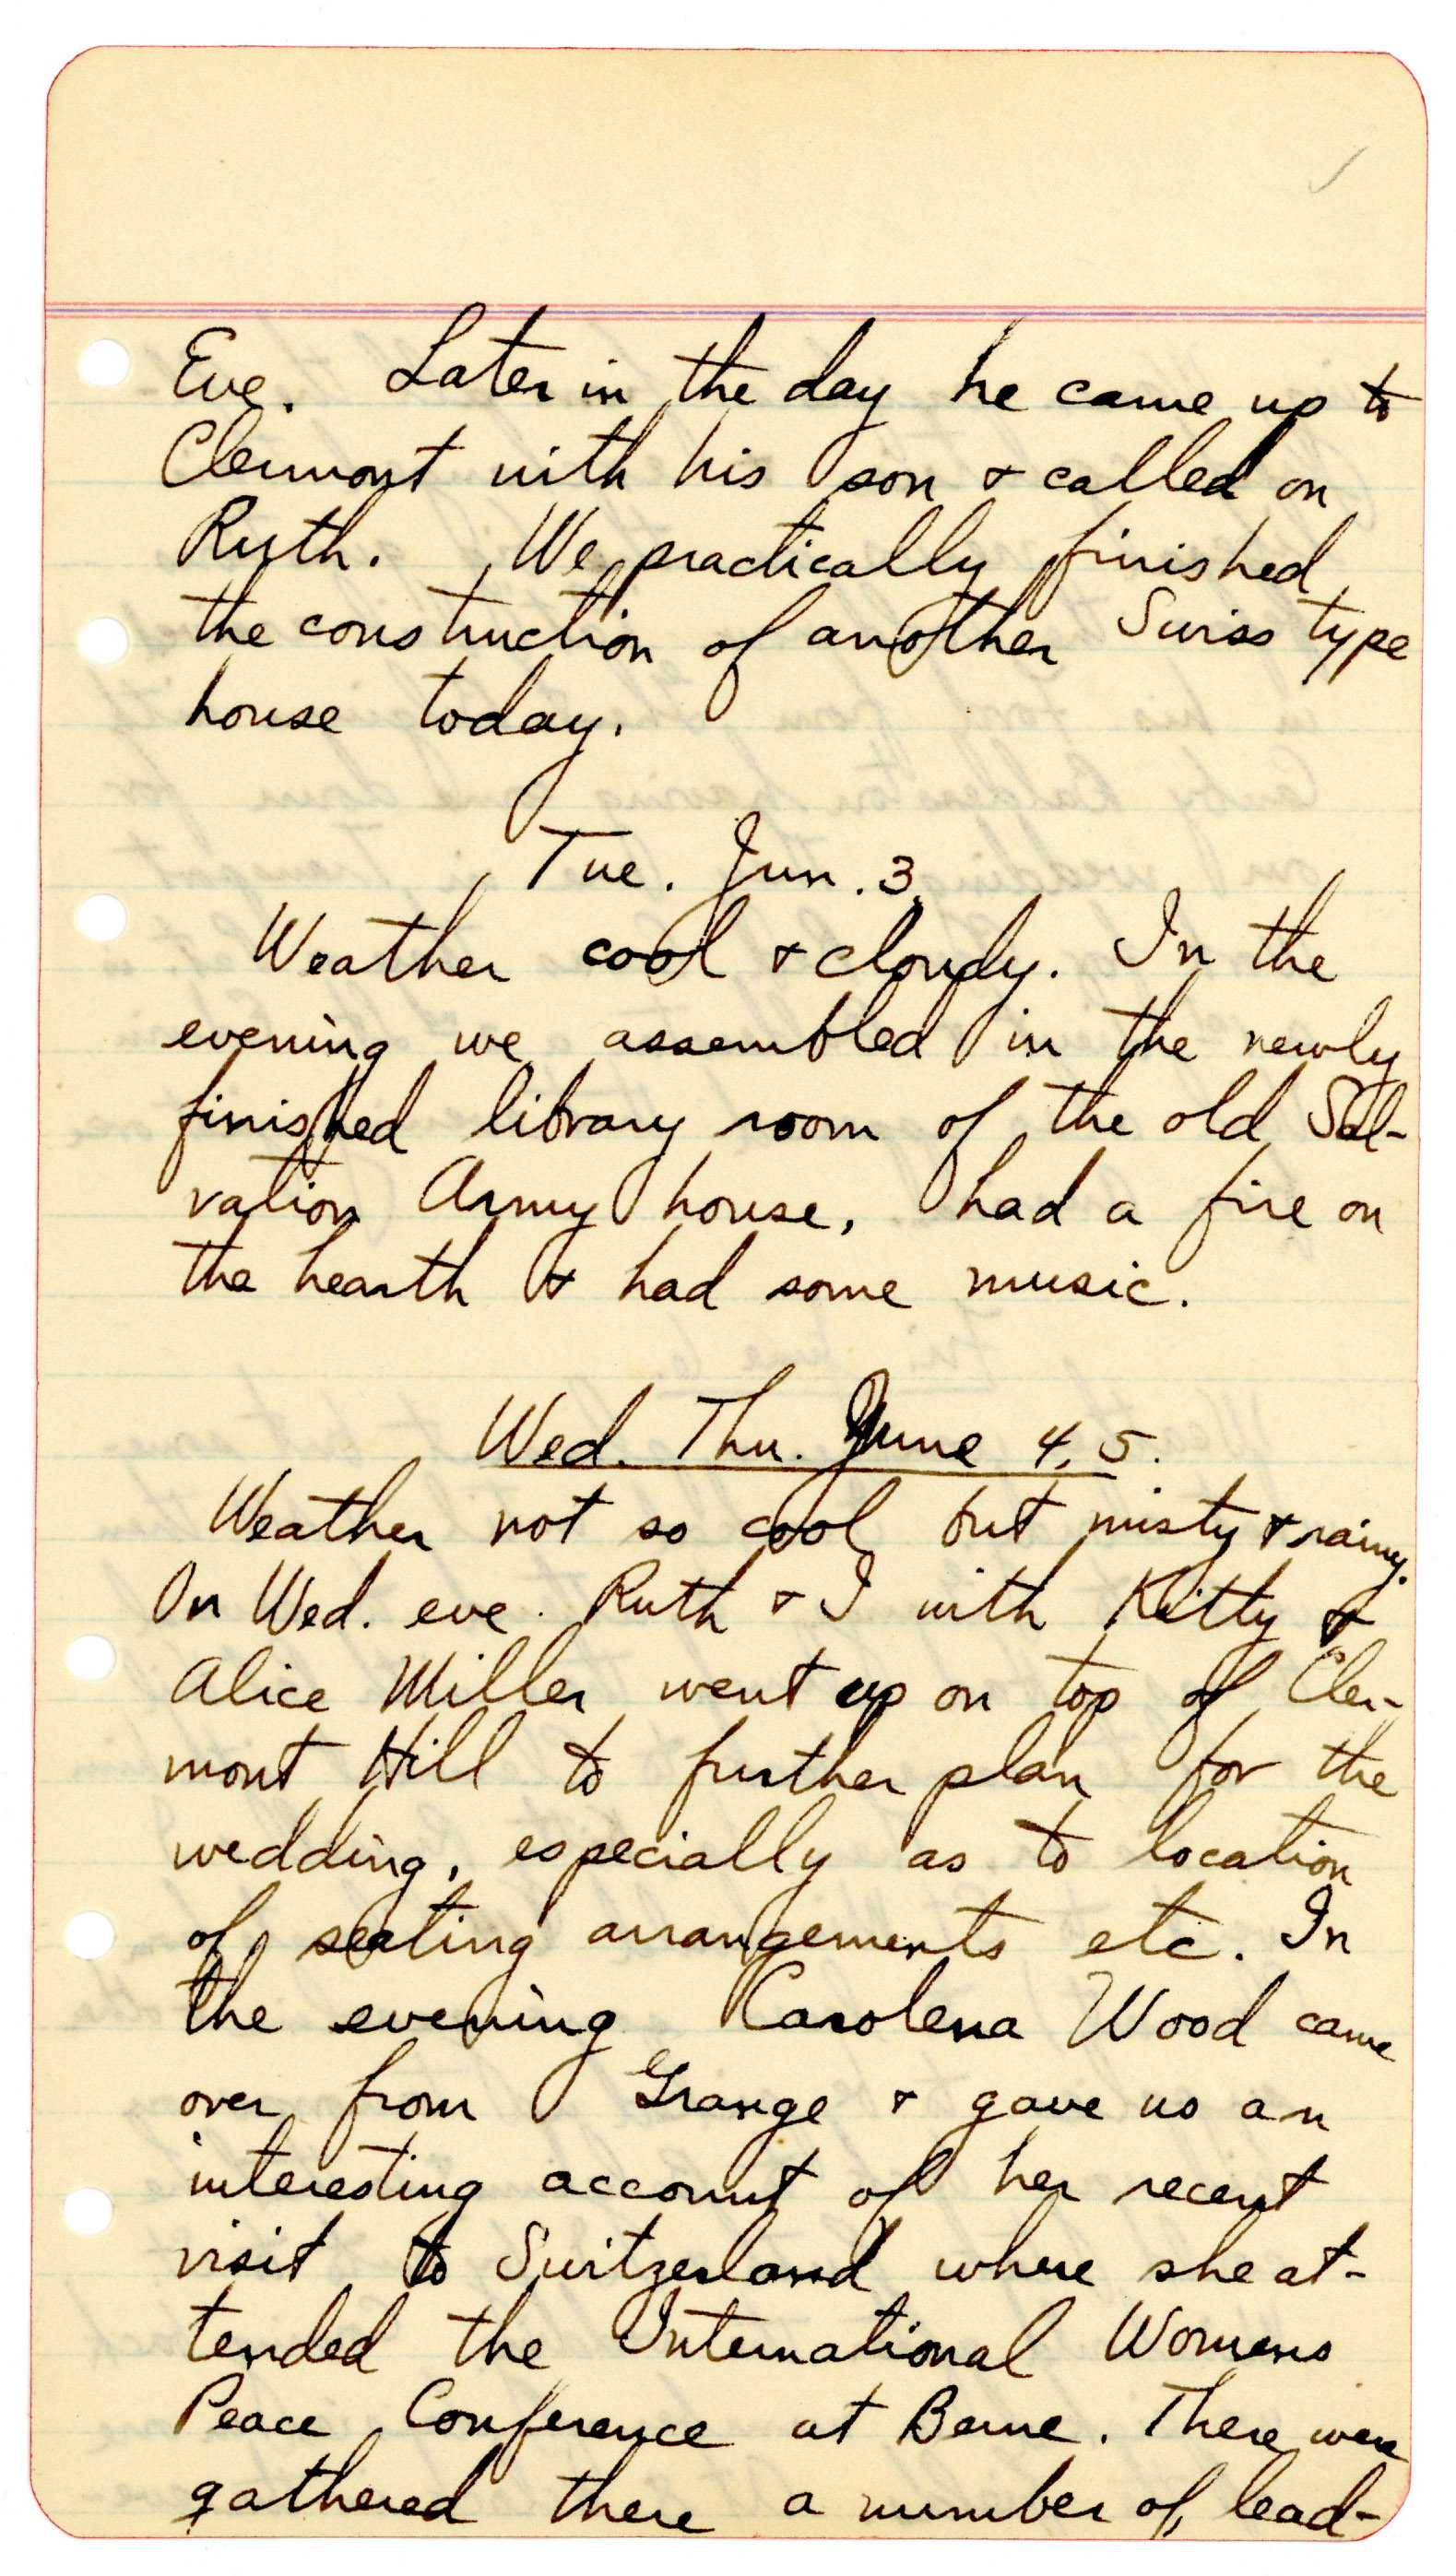 Eve. Later in the day he came up to
Clermont with his son + called on
Ruth. We practically finished
the construction of another Swiss type
house today.
Tue. Jun. 3.
Weather cool + cloudy. In the
evening we assembled in the newly
finished library room of the old Sal-
vation Army house, had a fire on
the hearth + had some music.
Wed. Thu. June 4, 5.
Weather not so cool but misty + rainy.
On Wed. eve. Ruth + I with Kitty +
Alice Miller went up on top of Cler-
mont Hill to further plan for the
wedding, especially as to location
of seating arrangements etc. In
the evening Carolena Wood came
over from Grange + gave us an
interesting account of her recent
visit to Switzerland where she at-
tended the International Womens
Peace Conference at Berne. There were
gathered there a number of lead-